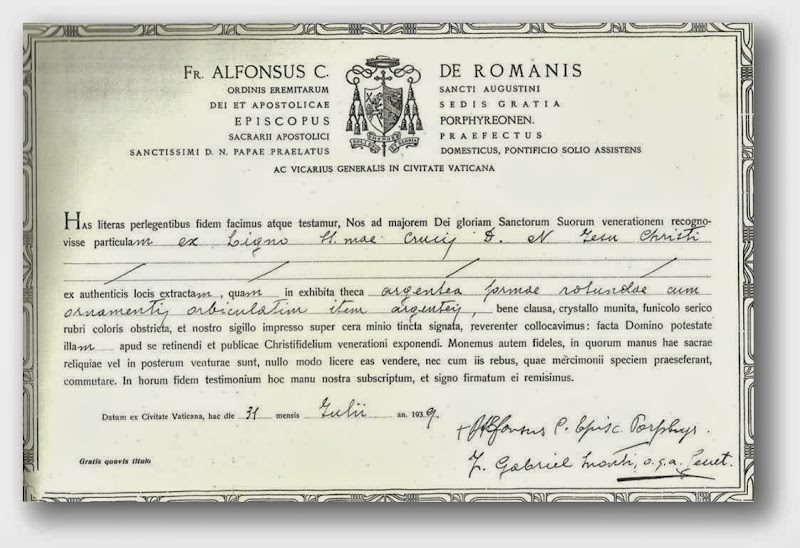 FR. ALFONSUS C. DE ROMANIS
ORDINIS EREMITARUM SANCTI AUGUSTINI
DEI ET APOSTOLICAE SEDIS GRATIA
EPISCOPUS PORPHYREONEN.
SACRARII APOSTOLICI PRAEFECTUS
SANCTISSIMI D. N. PAPAE PRAELATUS DOMESTICUS, PONTIFICIO SOLIO ASSISTENS
AC VICARIUS GENERALIS IN CIVITATE VATICANA
HAS literas perlegentibus fidem facimus atque testamur, Nos ad majorem Dei gloriam Sanctorum Suorum venerationem recogno-
visse particulam ex Ligno SS.mae Crucis D. N Jesu Christi
ex authenticis locis extractam, quam in exhibita theca argentea formae rotundae cum
ornamentis orbiculatim item argenteis, bene clausa, crystallo munita, funicolo serico
rubri coloris obstricta, et nostro sigillo impresso super cera minio tincta signata, reverenter collocavimus: facta Domino potestate
illam apud se retinendi et publicae Christifidelium venerationi exponendi. Monemus autem fideles, in quorum manus hae sacrae
reliquiae vel in posterum venturae sunt, nullo modo licere eas vendere, nec cum iis rebus, quae mercimonii speciem praeseferant,
commutare. In horum fidem testimonium hoc manu nostra subscriptum, et signo firmatum ei remisimus.
Datum ex Civitate Vaticana, hac die 31 mensis Julii an. 1939.
+ Alfonsus C. Episc. Porphyr.
Gratis quovis titulo
F. Gabriel Monti, o.s.a.